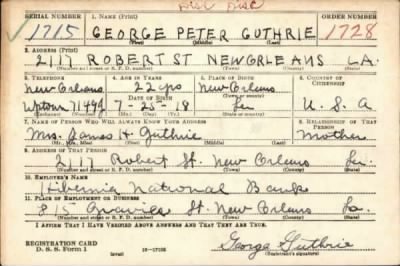 Disc Disc
SERIAL NUMBER 1. NAME (Print) ORDER NUMBER
1715 GEORGE PETER GUTHRIE 1728
(First) (Middle) (Last)
2. ADDRESS (Print)
2117 ROBERT ST NEW ORLEANS LA.
(Number and street or R. F. D. number) (Town) (County) (State)
3. TELEPHONE 4. AGE IN YEARS 5. PLACE OF BIRTH 6. COUNTRY OF CITIZENSHIP
New Orleans 22 yrs New Orleans
DATE OF BIRTH
Uptown 7-25-18 La. U. S. A
(Exchange) (Number) (Mo.) (Day) (Yr.) (State or country)
7. NAME OF PERSON WHO WILL ALWAYS KNOW YOUR ADDRESS 8. RELATIONSHIP OF THAT PERSON
Mrs. James H. Guthrie Mother
9. ADDRESS OF THAT PERSON
2117 Robert St. New Orleans La.
(Number and street or R. F. D. number) (Town) (County) (State)
10. EMPLOYER'S NAME
Hibernia National Bank
11. PLACE OF EMPLOYMENT OR BUSINESS
815 Gravier St. New Orleans La.
(Number and street or R. F. D. number) (Town) (County) (State)
I AFFIRM THAT I HAVE VERIFIED ABOVE ANSWERS AND THAT THEY ARE TRUE.
REGISTRATION CARD
D. S. S. Form 1 16-17105 George Guthrie
(Registrant's signature)